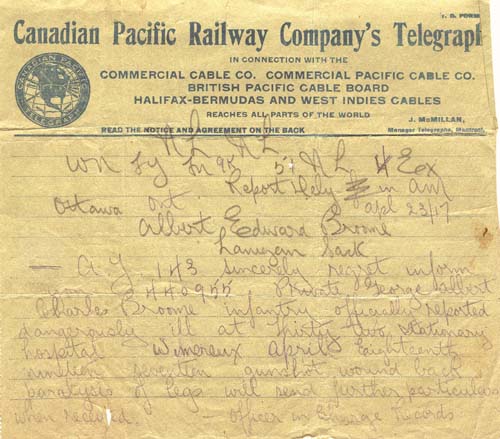 T. D. FORM
Canadian Pacific Railway Company's Telegraph
IN CONNECTION WITH THE
COMMERCIAL CABLE CO. COMMERCIAL PACIFIC CABLE CO.
BRITISH PACIFIC CABLE BOARD
HALIFAX-BERMUDAS AND WEST INDIES CABLES
REACHES ALL PARTS OF THE WORLD
J. McMILLAN,
READ THE NOTICE AND AGREEMENT ON THE BACK
Manager Telegraphs, Montreal.
CANADIAN PACIFIC
TELEGRAPH
Report Dely in am
Ottawa Ont Apl 23/17
Albert Edward Broome
Lanigan Sask
143 Sincerely regret inform
you 440955 Private George Albert
Charles Broome infantry officially reported
dangerously ill at thirty two stationary
hospital Wimereux April Eighteenth
nineteen seventeen gunshot wound back
paralysis of legs will send further particulars
when received. - Officer in Charge Records